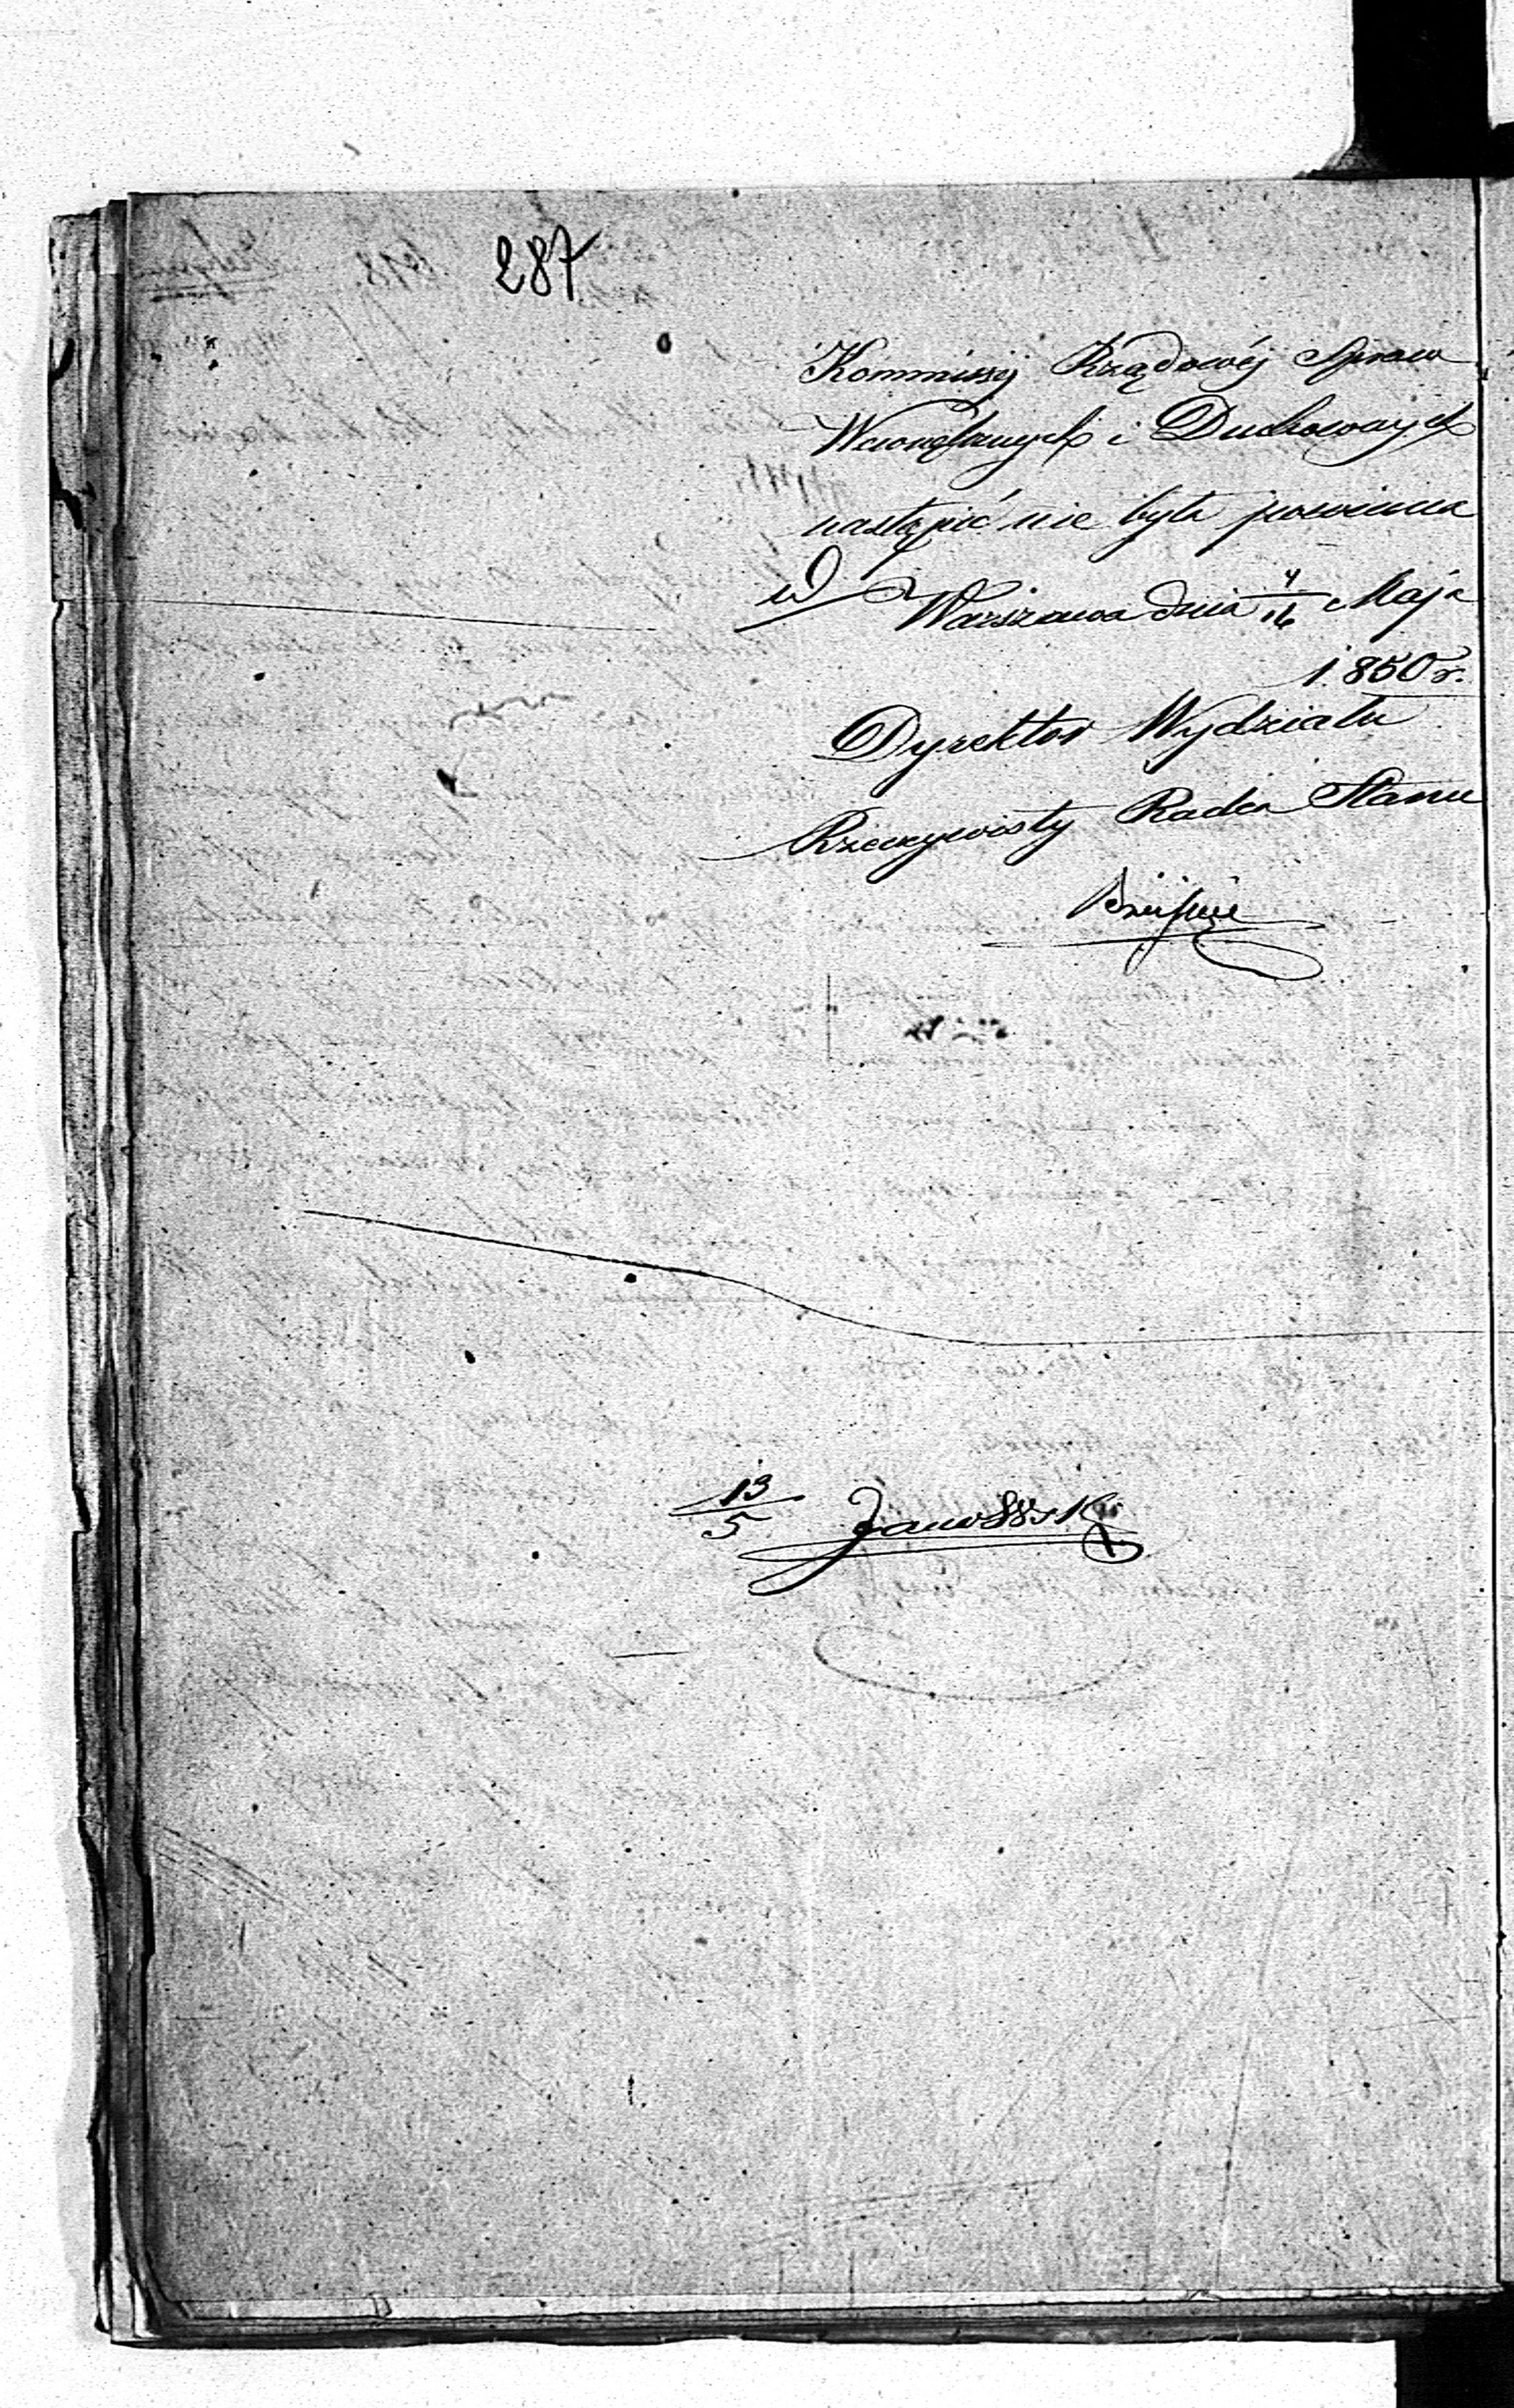 287
Kommissyj Rządowéj Spraw
Wewnętrznych i Duchownych
nastąpić nie była powinna
w Warszawa dnia 4/16 Maja
1850 r.
Dyrektor Wydziału
Rzeczywisty Radca Stanu
13/5